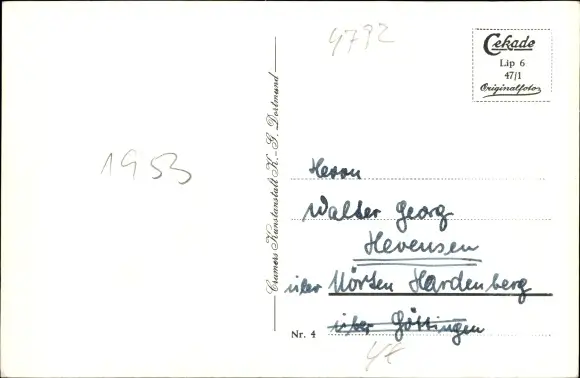 4792
Cekade
Lip 6
47/1
Originalfoto
1953
Cramers Kunstanstalt K.-G. Dortmund
Herrn
Walter Georg
Hevensen
über Nörten Hardenberg
Nr. 4 über Göttingen